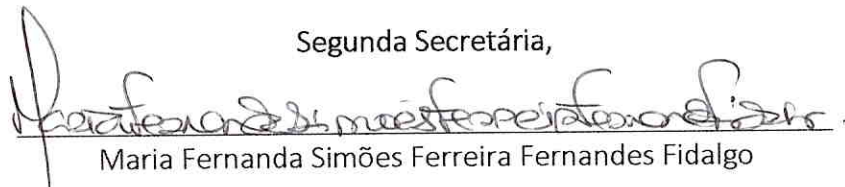 Segunda Secretária,
Maria Fernanda Simões Ferreira Fernandes Fidalgo
Maria Fernanda Simões Ferreira Fernandes Fidalgo